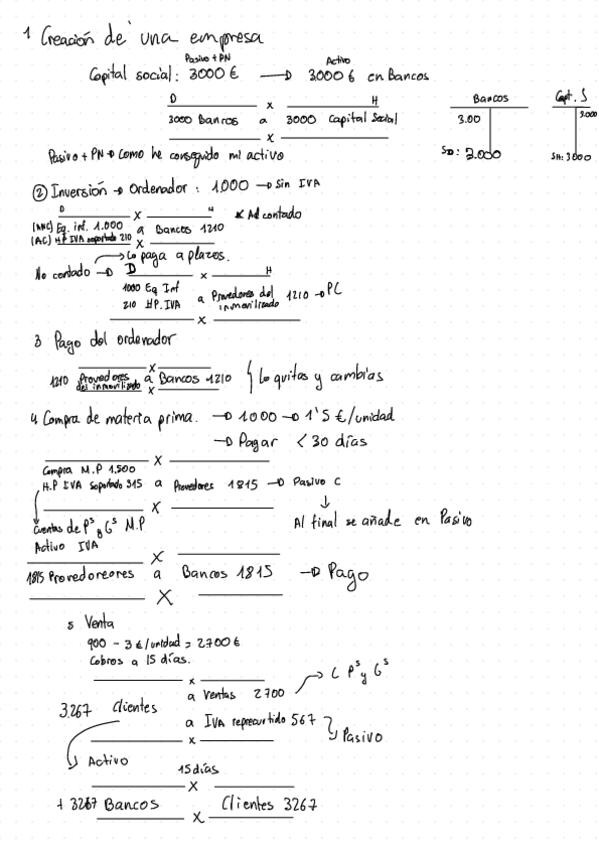 1 Creación de una empresa
Pasivo + PN Activo
Capital social: 3000 € → 3000 € en Bancos
D x H
3000 Bancos a 3000 Capital Social
x
Bancos
3.00
SD: 3.000
Capt. S
3.000
SH: 3000
Pasivo + PN → Como he conseguido mi activo
② Inversión → Ordenador : 1.000 → Sin IVA
D x H x Al contado
(ANC) Eq. inf. 1.000 a Bancos 1210
(AC) H.P IVA soportado 210 x
→ Lo paga a plazos.
No contado → D x H
1000 Eq Inf
210 HP. IVA a Proveedores del inmovilizado 1210 → PC
x
3 Pago del ordenador
x
1210 Proveedores del inmovilizado a Bancos 1210 } Lo quitas y cambias
x
4 Compra de materia prima. → 1000 → 1'5 €/unidad
→ Pagar < 30 días
x
Compra M.P 1.500
H.P IVA Soportado 315 a Proveedores 1815 → Pasivo C
x
Cuentas de Pˢ y Gˢ M.P
Activo IVA
Al final se añade en Pasivo
x
1815 Provedoreores a Bancos 1815 → Pago
x
5 Venta
900 - 3 €/unidad = 2700 €
Cobros a 15 días.
x
a Ventas 2700 → C Pˢ y Gˢ
3.267 Clientes
a IVA reprecurtido 567 } Pasivo
x
Activo
15 días
x
+ 3267 Bancos Clientes 3267
x